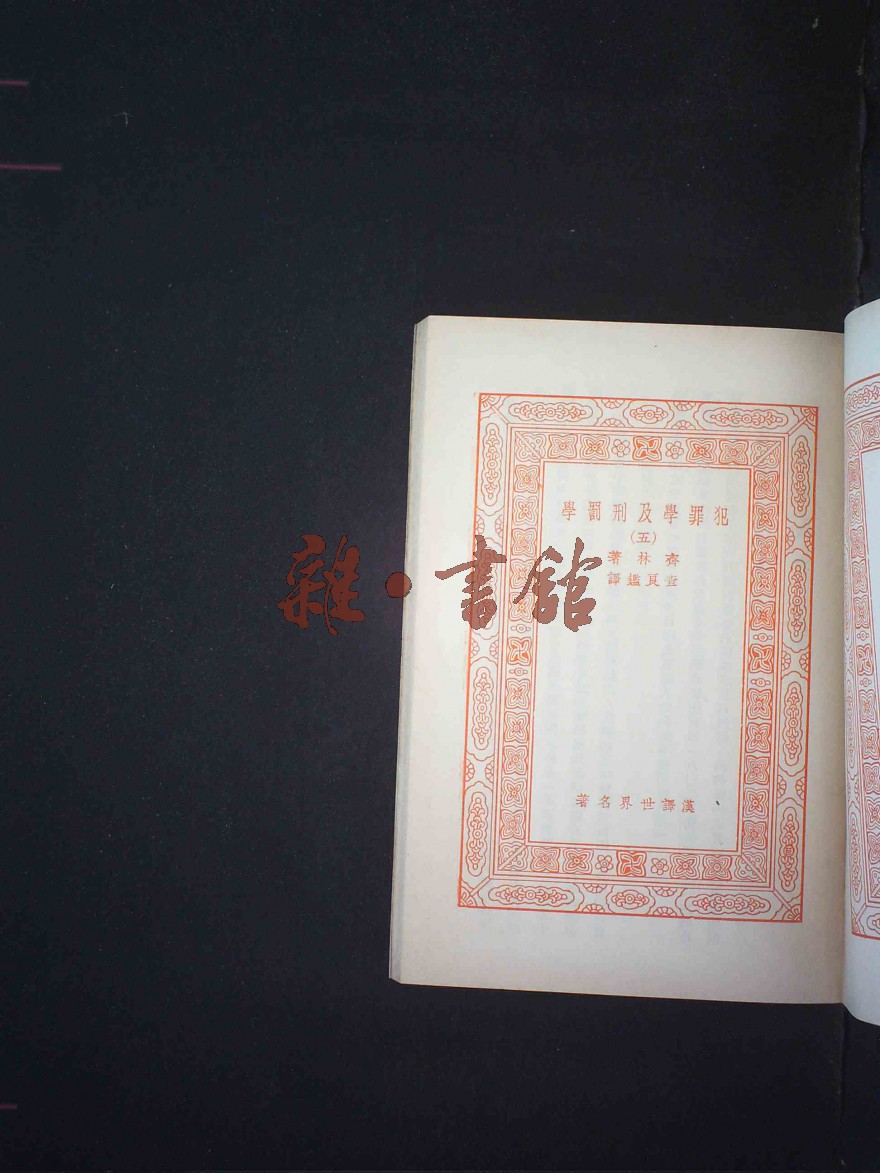 犯罪學及刑罰學
(五)
齊林著
查良鑑譯
雜·書館
漢譯世界名著